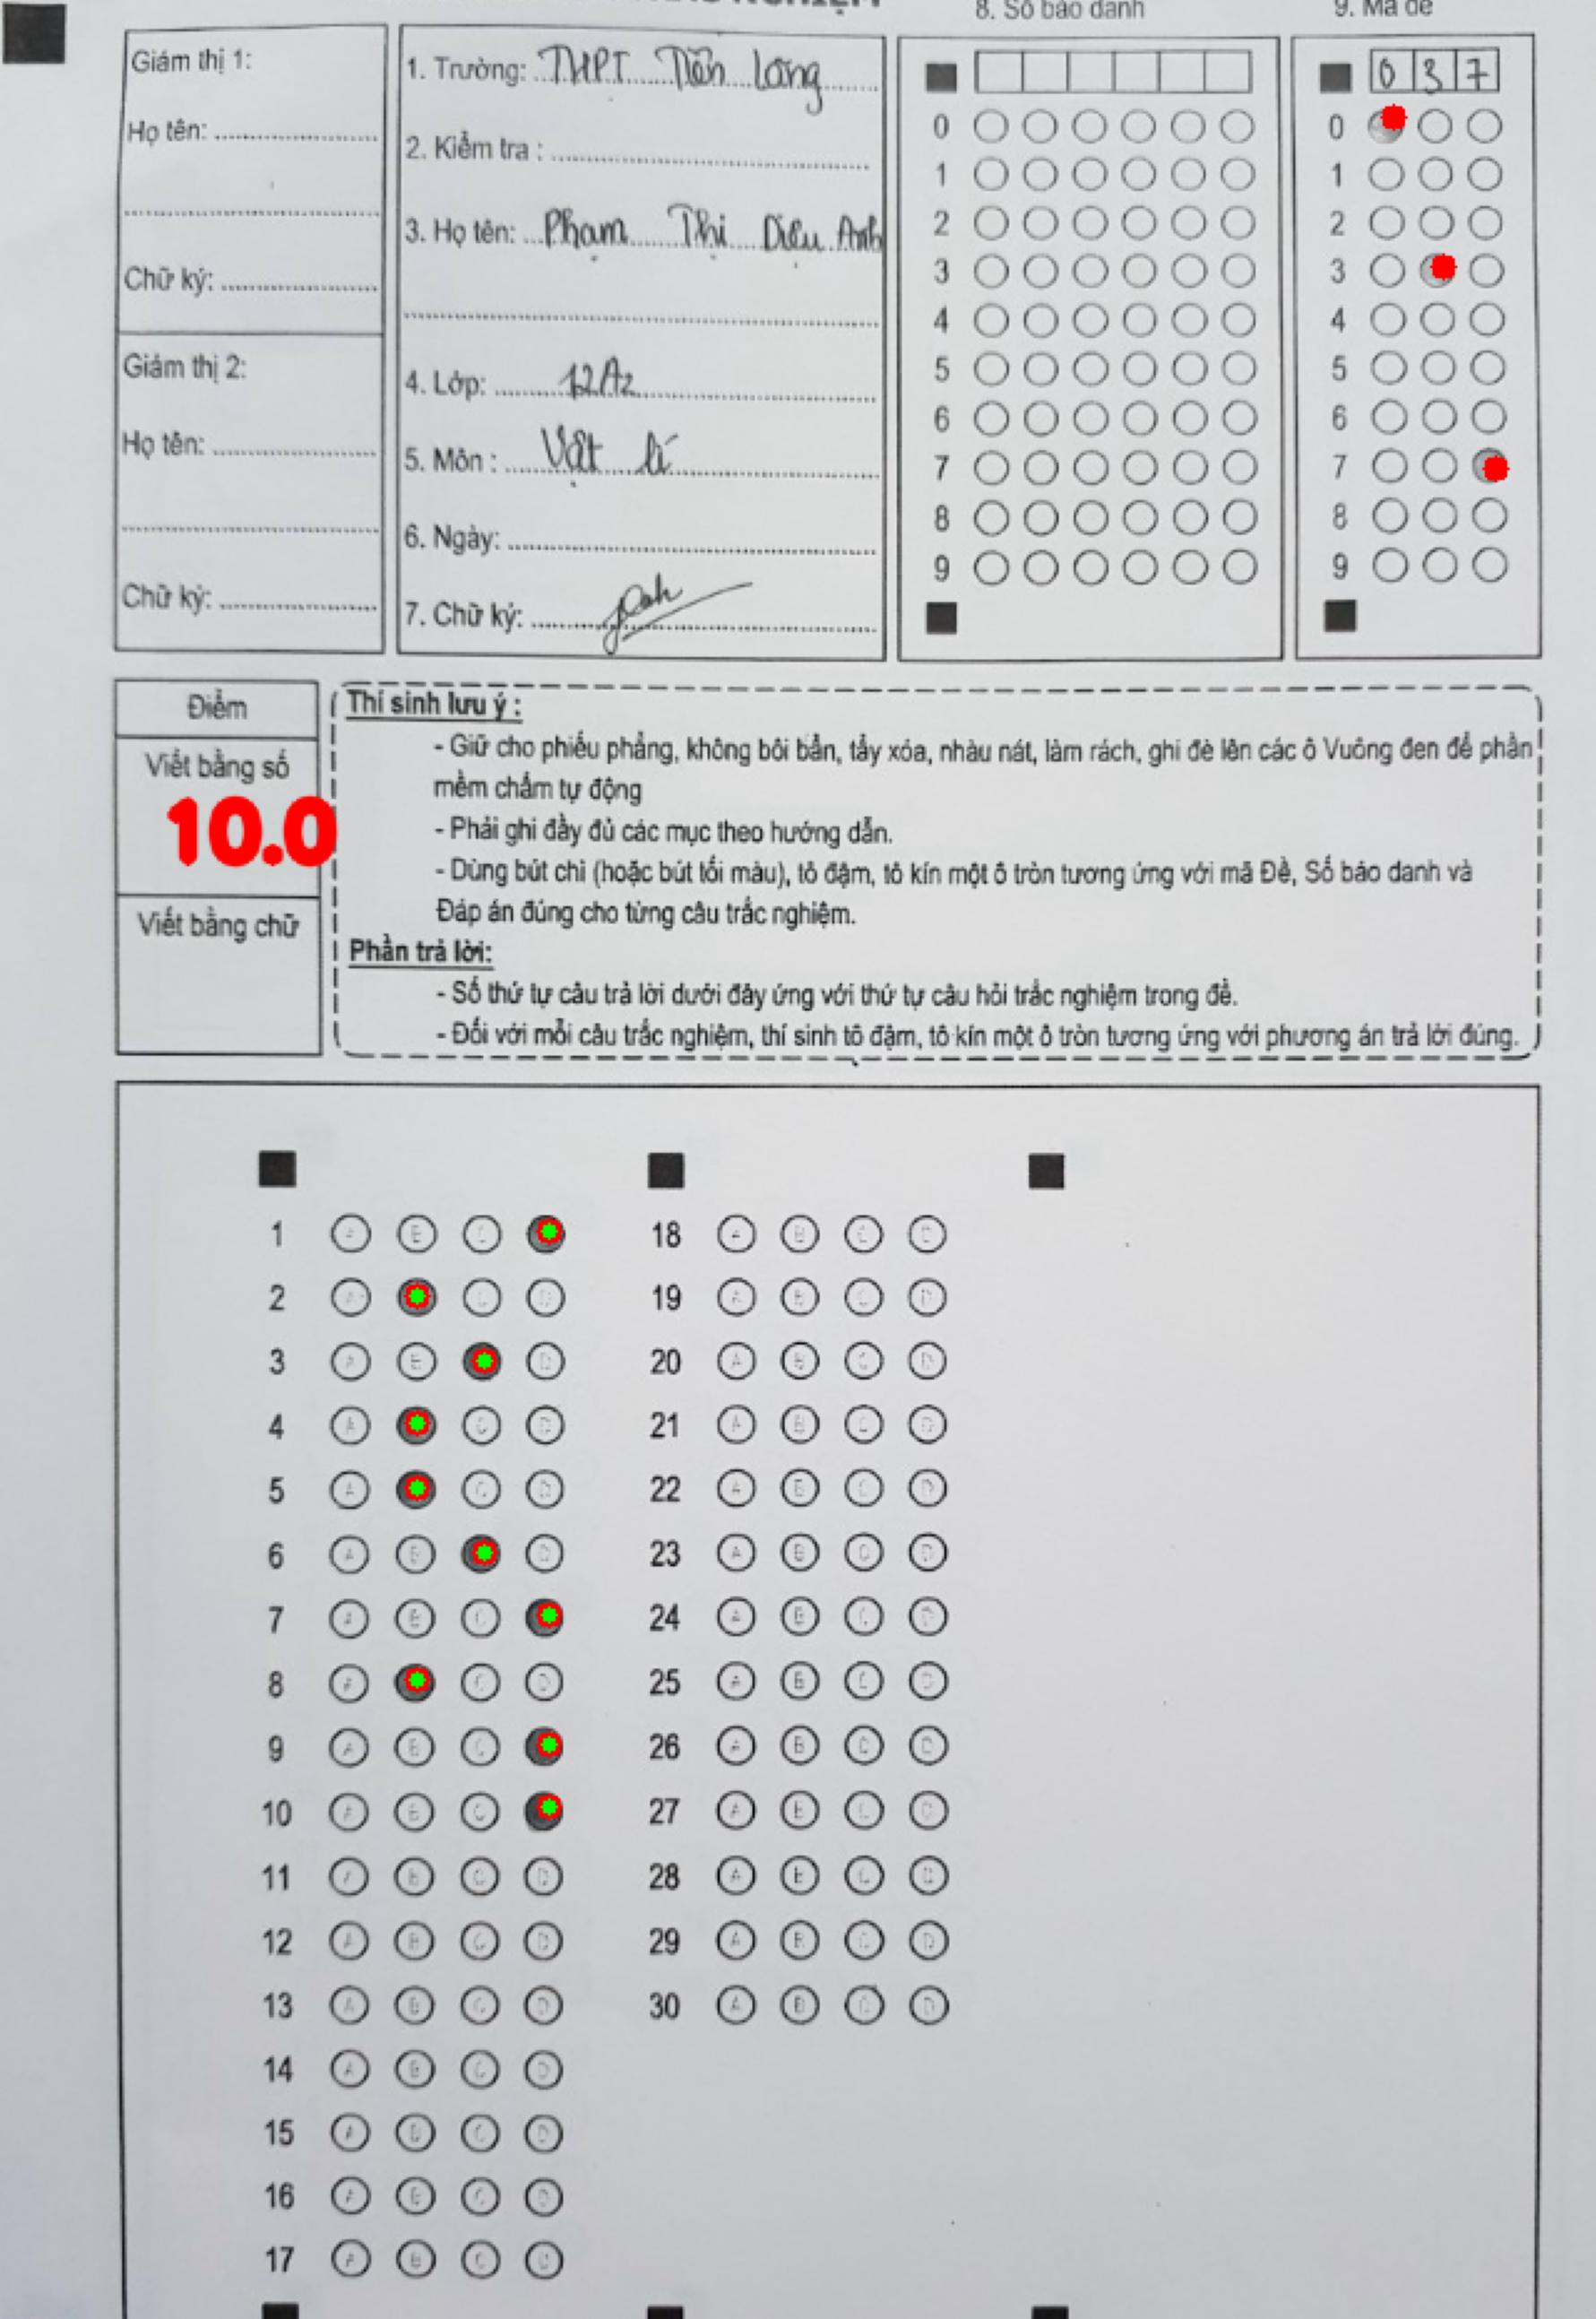 8. Số báo danh
9. Mã đề
Giám thị 1:
Họ tên: ...
Chữ ký: ...
Giám thị 2:
Họ tên: ...
Chữ ký: ...
1. Trường: THPT Tiên Lãng
2. Kiểm tra : ...
3. Họ tên: Phạm Thị Diệu Anh
4. Lớp: 12A2
5. Môn : Vật lí
6. Ngày: ...
7. Chữ ký: ...
0
1
2
3
4
5
6
7
8
9
0 3 7
0
1
2
3
4
5
6
7
8
9
Điểm
Viết bằng số
10.0
Viết bằng chữ
Thí sinh lưu ý :
- Giữ cho phiếu phẳng, không bôi bẩn, tẩy xóa, nhàu nát, làm rách, ghi đè lên các ô Vuông đen để phần
mềm chấm tự động
- Phải ghi đầy đủ các mục theo hướng dẫn.
- Dùng bút chì (hoặc bút tối màu), tô đậm, tô kín một ô tròn tương ứng với mã Đề, Số báo danh và
Đáp án đúng cho từng câu trắc nghiệm.
Phần trả lời:
- Số thứ tự câu trả lời dưới đây ứng với thứ tự câu hỏi trắc nghiệm trong đề.
- Đối với mỗi câu trắc nghiệm, thí sinh tô đậm, tô kín một ô tròn tương ứng với phương án trả lời đúng.
1 A B C
2 A C D
3 A B D
4 A C D
5 A C D
6 A B D
7 A B C
8 A C D
9 A B C
10 A B C
11 A B C D
12 A B C D
13 A B C D
14 A B C D
15 A B C D
16 A B C D
17 A B C D
18 A B C D
19 A B C D
20 A B C D
21 A B C D
22 A B C D
23 A B C D
24 A B C D
25 A B C D
26 A B C D
27 A B C D
28 A B C D
29 A B C D
30 A B C D